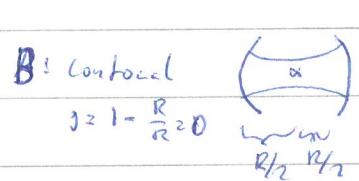 B: Confocal
g = 1 - R/R = 0
α
R/2 R/2